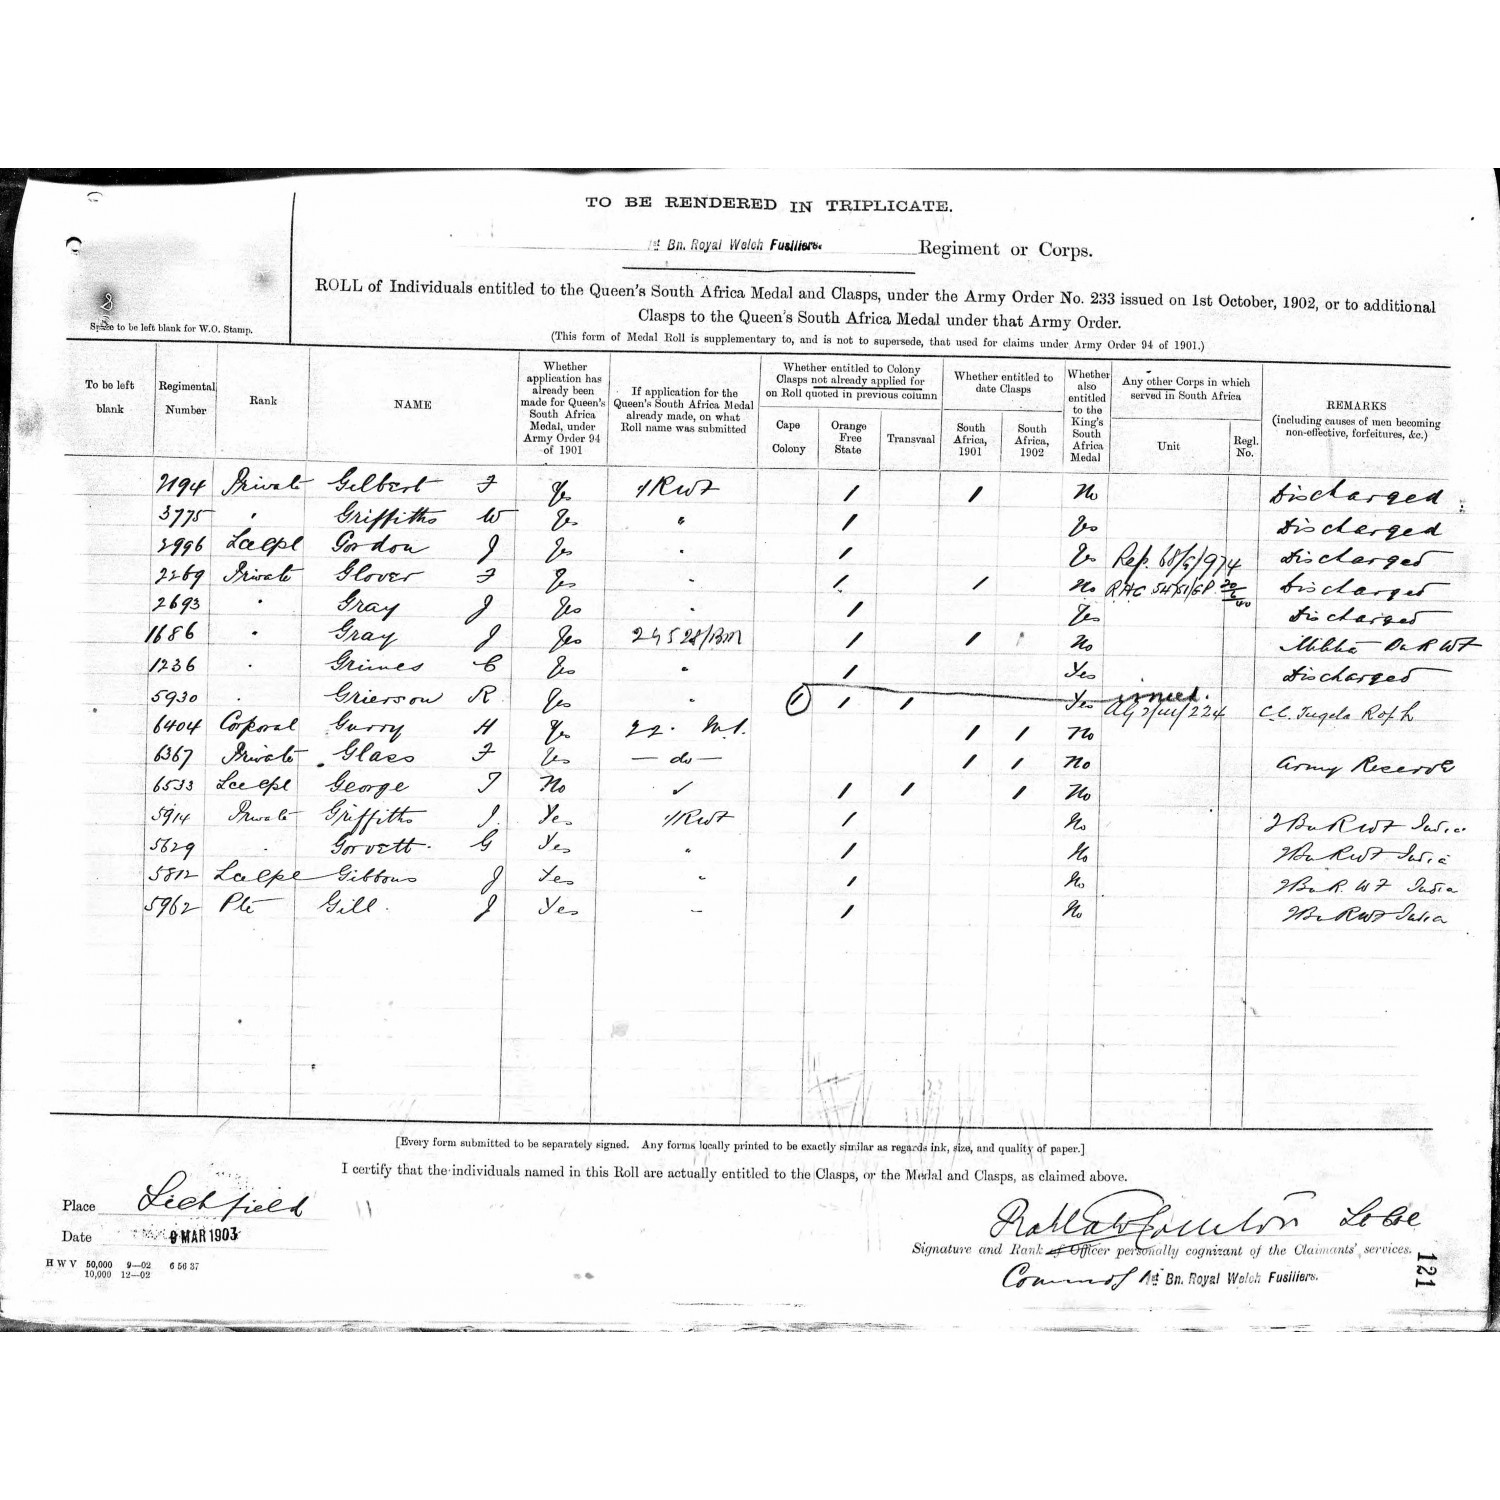 TO BE RENDERED IN TRIPLICATE.
1st Bn. Royal Welch Fusiliers. Regiment or Corps.
ROLL of Individuals entitled to the Queen's South Africa Medal and Clasps, under the Army Order No. 233 issued on 1st October, 1902, or to additional
Clasps to the Queen's South Africa Medal under that Army Order.
(This form of Medal Roll is supplementary to, and is not to supersede, that used for claims under Army Order 94 of 1901.)
Space to be left blank for W.O. Stamp.
To be left blank
Regimental Number
Rank
NAME
Whether application has already been made for Queen's South Africa Medal, under Army Order 94 of 1901
If application for the Queen's South Africa Medal already made, on what Roll name was submitted
Whether entitled to Colony Clasps not already applied for on Roll quoted in previous column
Cape Colony
Orange Free State
Transvaal
Whether entitled to date Clasps
South Africa, 1901
South Africa, 1902
Whether also entitled to the King's South Africa Medal
Any other Corps in which served in South Africa
Unit
Regl. No.
REMARKS
(including causes of men becoming non-effective, forfeitures, &c.)
2194 Private Gilbert F Yes 1/RWF / / No Discharged
3775 " Griffiths W Yes " / Yes Discharged
2996 L/Cpl Gordon J Yes " / Yes Rep. 68/5/974 Discharged
2269 Private Glover F Yes " / / No Discharged
2693 " Gray J Yes " / Yes Discharged
1686 " Gray J Yes 24528/BM / / No Militia RWF
1236 " Grimes C Yes " / Yes Discharged
5930 " Grierson R Yes " 1 / / Yes issued. C.C. Tugela R of L
6404 Corporal Gurry H Yes / / No
6367 Private Glass F Yes — do — / / No Army Reserve
6533 L/Cpl George T No ✓ / / / No
5914 Private Griffiths J. Yes 1/RWF / No 2 Bn RWF India
5629 " Gorvett. G Yes " / No 2 Bn RWF India
5812 L/Cpl Gibbons J Yes " / No 2 Bn R. WF India
5962 Pte Gill. J Yes – / No 2 Bn RWF India
[Every form submitted to be separately signed. Any forms locally printed to be exactly similar as regards ink, size, and quality of paper.]
I certify that the individuals named in this Roll are actually entitled to the Clasps, or the Medal and Clasps, as claimed above.
Place Lichfield
Date 9 MAR 1903
Signature and Rank of Officer personally cognizant of the Claimants' services.
1st Bn. Royal Welch Fusiliers.
H W V 50,000 9—02 6 56 37
10,000 12—02
121